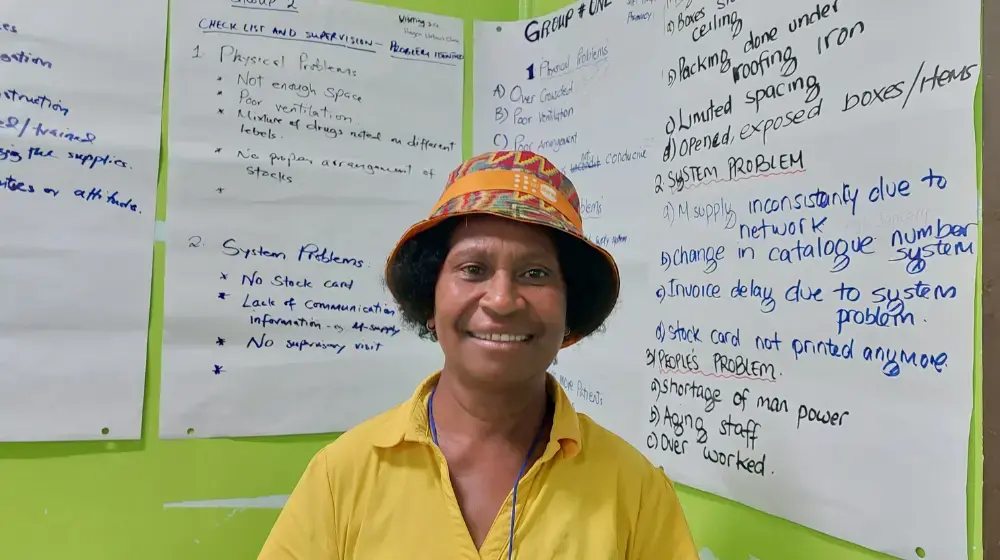 es
truction
ed/trained
the supplies.
or attitude.
GROUP 2
CHECK LIST AND SUPERVISION -
1. Physical Problems
* Not enough space
* Poor ventilation
* Mixture of drugs noted on different
labels.
* No proper arrangement of
stocks
*
2. System Problems.
* No Stock card
* Lack of Communication
information - M-supply
* No supervisory visit
*
GROUP # ONE
1 Physical Problems
A) Over Crowded
B) Poor Ventilation
C) Poor Arrangement
conducive
more Patients
Pharmacy
a) Boxes
ceiling
b) Packing done under
roofing iron
c) Limited spacing
d) Opened, exposed boxes/Items
2. SYSTEM PROBLEM
a) M supply inconsistanty due to
network
b) change in catalogue number
system
c) Invoice delay due to system
problem.
d) stock card not printed anymore.
3) PEOPLE'S PROBLEM.
a) shortage of man power
b) Aging staff
c) Over worked.